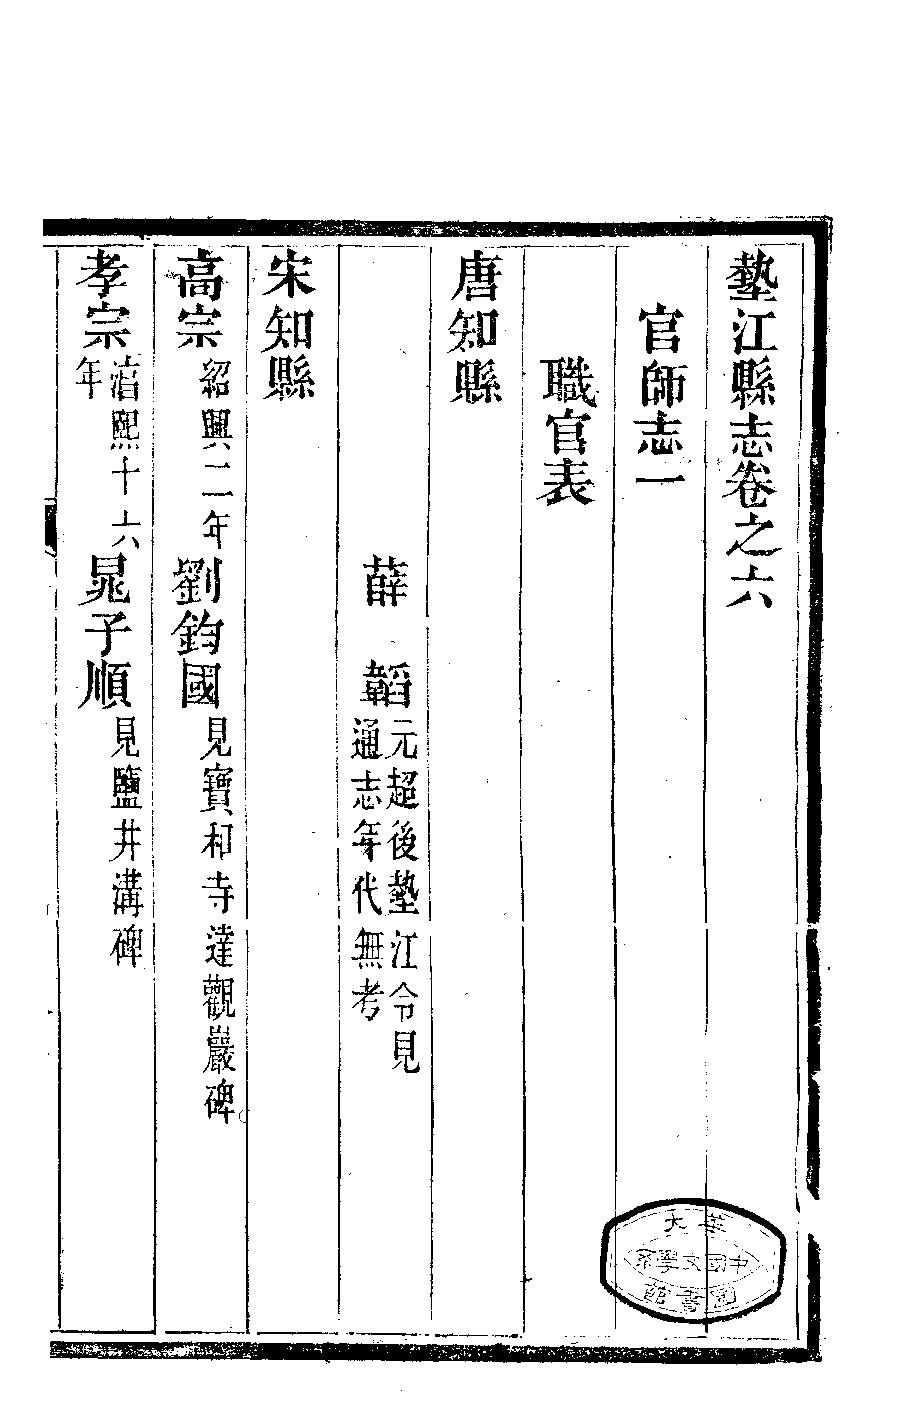 墊江縣志卷之六
官師志一
職官表
唐知縣
薛　韜元超後墊江令見
通志年代無考
宋知縣
高宗紹興二年劉鈞國見寶和寺達觀巖碑
孝宗淳熙十六
年
晁子順見鹽井溝碑
華大
中國文學系
圖書館